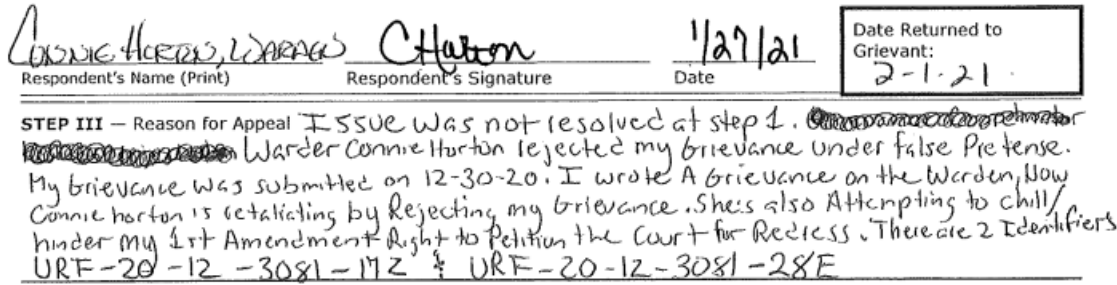 Connie Horton, Warden CHorton 1/27/21 Date Returned to
Grievant:
Respondent's Name (Print) Respondent's Signature Date 2-1-21
STEP III — Reason for Appeal Issue was not resolved at step 1.
Warden Connie Horton rejected my Grievance under false Pretense.
My Grievance was submitted on 12-30-20. I wrote A Grievance on the Warden, Now
Connie horton is retaliating by Rejecting my Grievance. She's also Attempting to chill/
hinder my 1st Amendment Right to Petition the Court for Redress. There are 2 Identifiers
URF-20-12-3081-17Z & URF-20-12-3081-28E